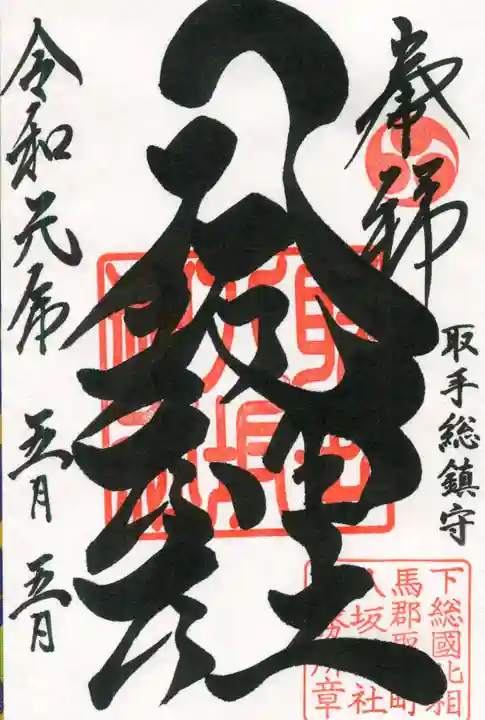 奉拝
取手総鎮守
八坂神社
令和元年 五月 五日
下総國北相
馬郡取 町
八坂 社
務所章